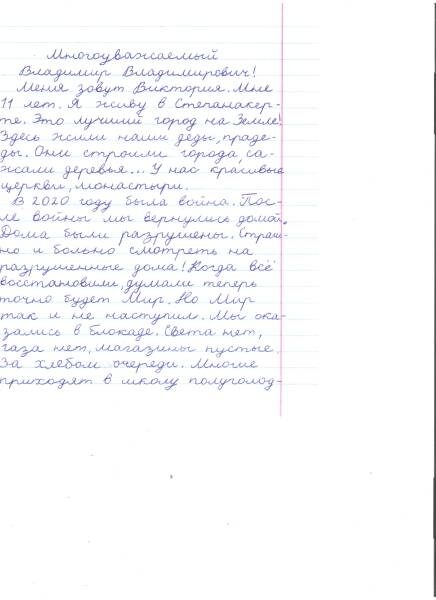 Многоуважаемый
Владимир Владимирович!
Меня зовут Виктория. Мне
11 лет. Я живу в Степанакер-
те. Это лучший город на Земле!
Здесь жили наши деды, праде-
ды. Они строили города, са-
жали деревья... У нас красивые
церкви, монастыри.
В 2020 году была война. Пос-
ле войны мы вернулись домой.
Дома были разрушены. Страш-
но и больно смотреть на
разрушенные дома! Когда всё
восстановили, думали теперь
точно будет Мир. Но Мир
так и не наступил. Мы ока-
зались в блокаде. Света нет,
газа нет, магазины пустые.
За хлебом очереди. Многие
приходят в школу полуголод-